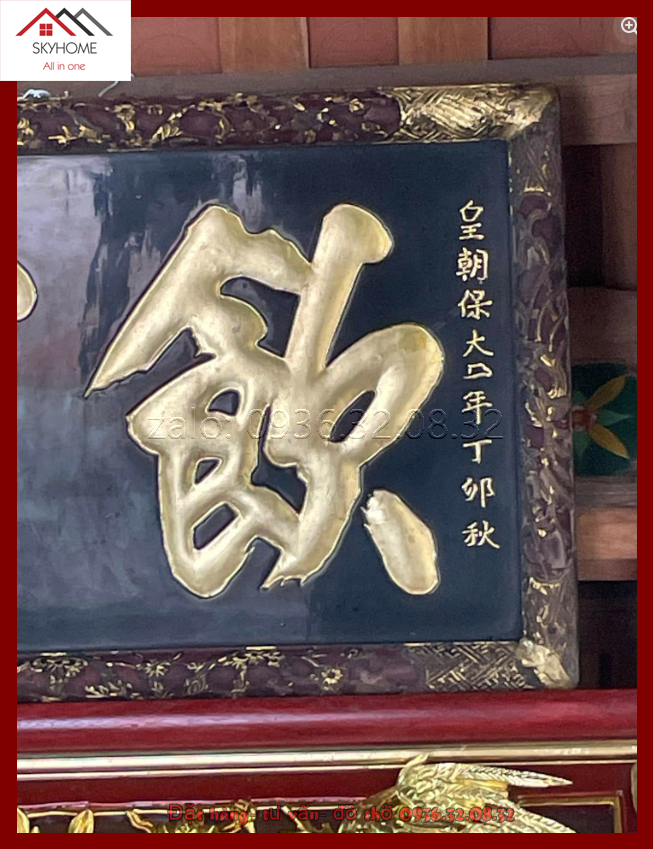 SKYHOME
All in one
皇朝保大口年丁卯秋
飲
zalo: 0936.32.08.32
Đặt hàng- tư vấn- đồ thờ 0936.32.08.32